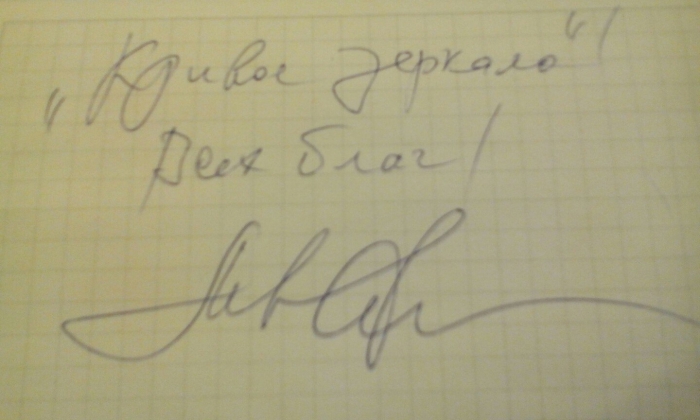 „Кривое зеркало“!
Всех благ!